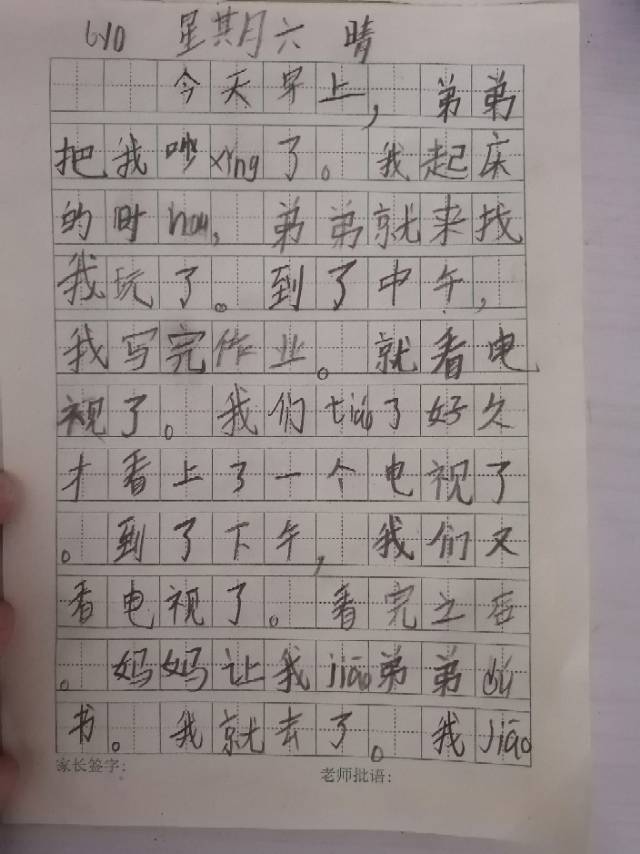 6/10 星期六 晴
今天早上，弟弟
把我吵xǐng了。我起床
的时hou，弟弟就来找
我玩了。到了中午，
我写完作业。就看电
视了。我们tiáo了好久
才看上了一个电视了
。到了下午，我们又
看电视了。看完之后
。妈妈让我jiāo弟弟dú
书。我就去了。我jiāo
家长签字： 老师批语：